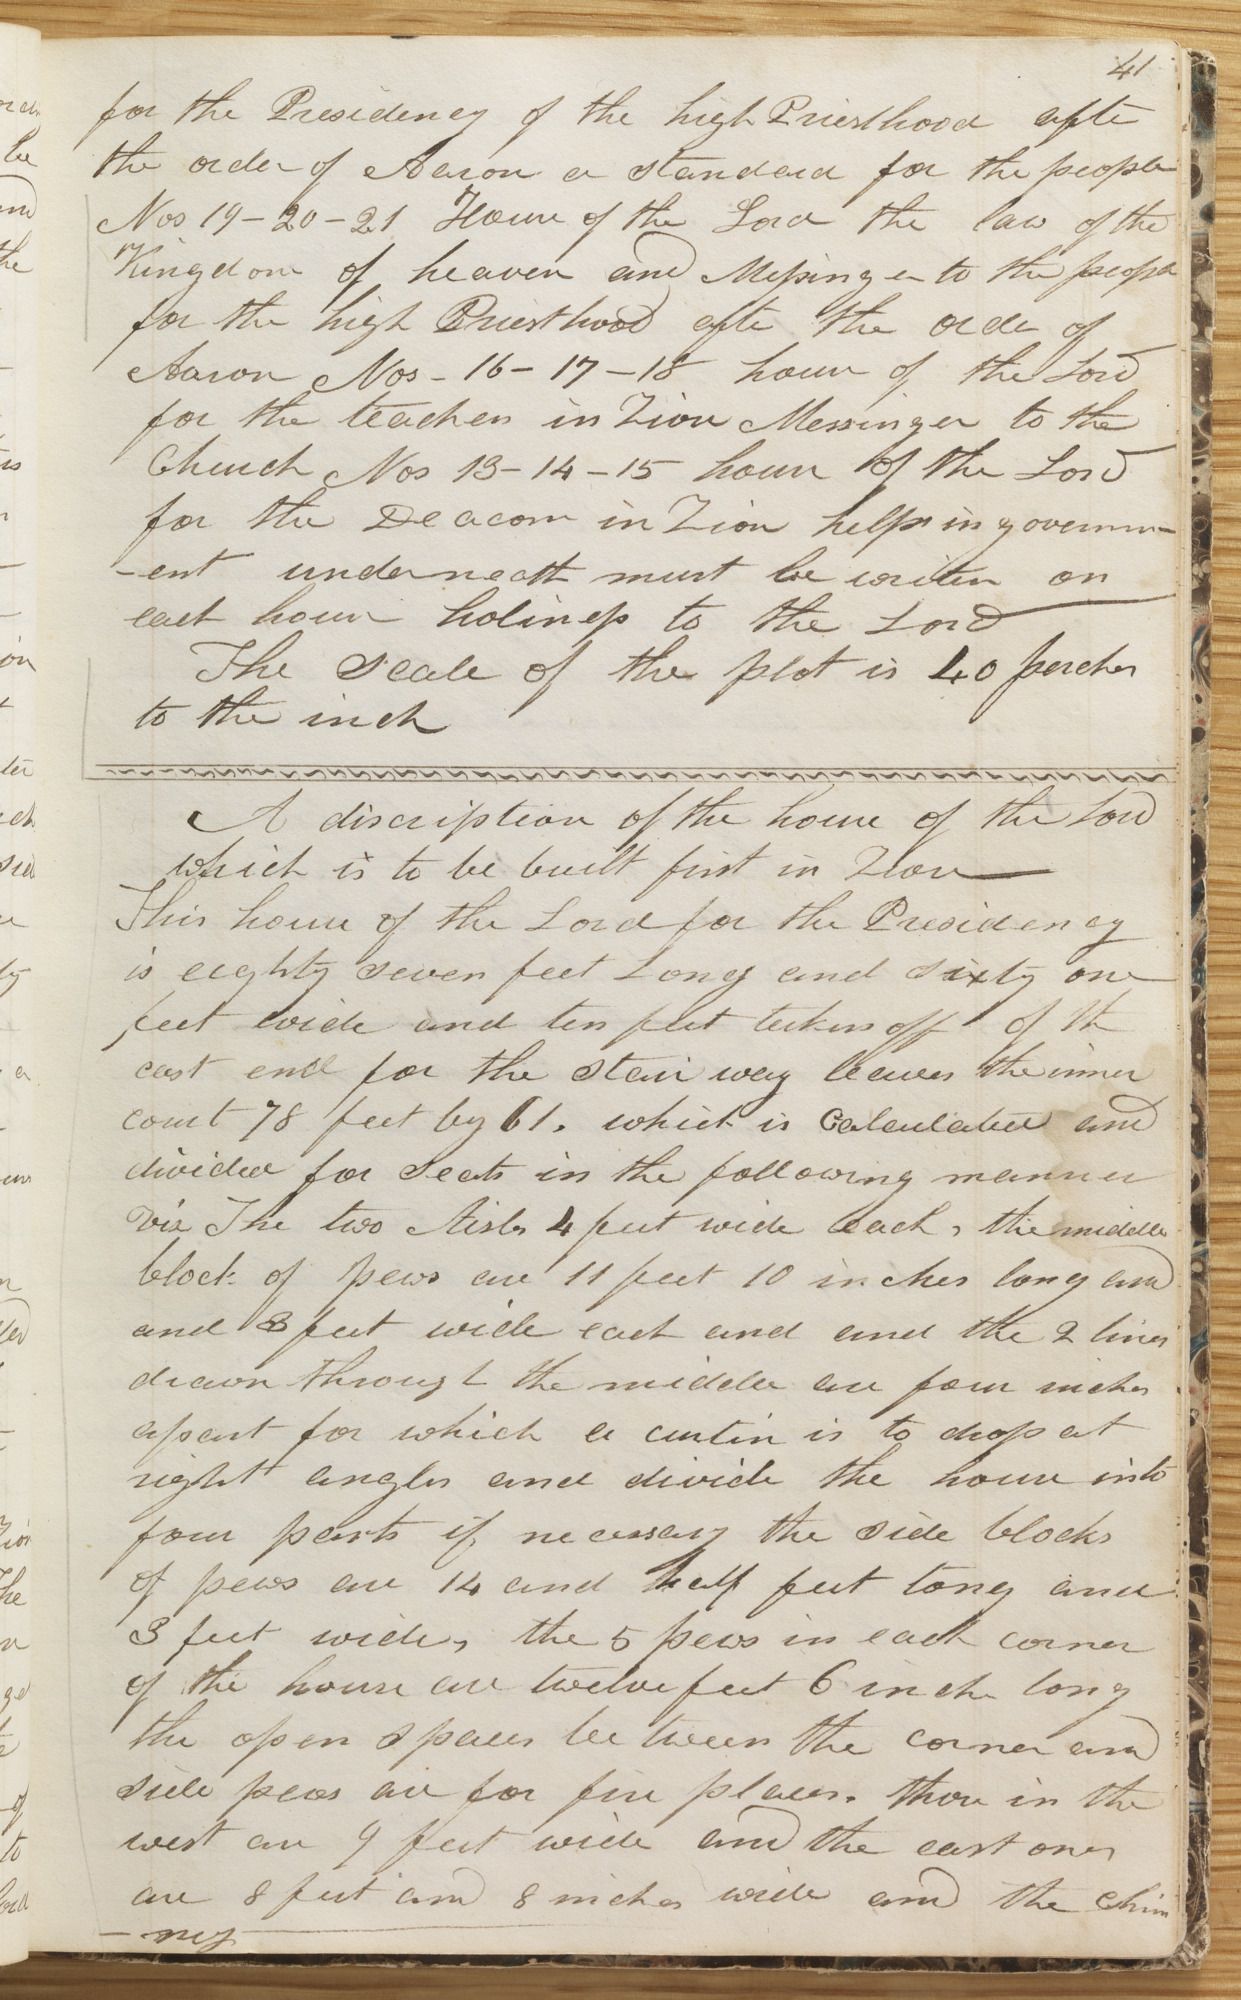 41
for the Presidency of the high Priesthood afte
the order of Aaron a standard for the people
Nos 19-20-21 House of the Lord the law of the
Kingdom of heaven and Messinger to the people
for the high Priesthood afte the order of
Aaron Nos-16-17-18 house of the Lord
for the teachers in Zion Messinger to the
Church Nos 13-14-15 house of the Lord
for the Deacons in Zion helps in governm-
-ent underneath must be writen on
each house holiness to the Lord
The Scale of the plot is 40 perches
to the inch
A discription of the house of the Lord
which is to be built first in Zion
This house of the Lord for the Presidency
is eighty seven feet Long and sixty one
feet wide and ten feet taken off of the
east end for the stair way leaves the inner
court 78 feet by 61. which is Calculated and
divided for seats in the following manner
Viz The two Aisles 4 feet wide each, the middle
block of pews are 11 feet 10 inches long and
and 3 feet wide each and and the 2 lines
drawn through the middle are four inches
apart for which a curtin is to drop at
right angles and divide the house into
four parts if necessary the side blocks
of pews are 14 and half feet long and
3 feet wide, the 5 pews in each corner
of the house are twelve feet 6 inch long
the open spaces between the corner and
side pews are for fire places. those in the
west are 9 feet wide and the east ones
are 8 feet and 8 inches wide and the chim
-ney